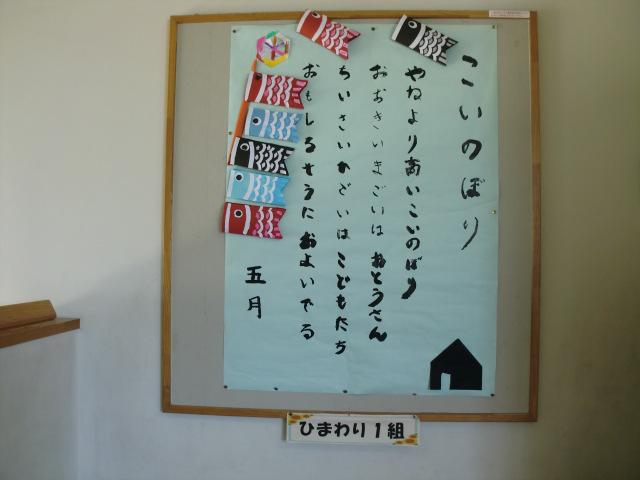 こいのぼり
やねより高いこいのぼり
おおきいまごいはおとうさん
ちいさいひごいはこどもたち
おもしろそうにおよいでる
五月
ひまわり1組